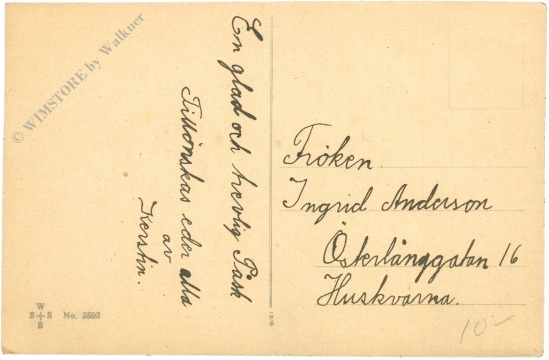 En glad och trevlig Påsk
Tillönskas eder alla
av
Kerstin.
Fröken
Ingrid Anderson
Österlånggatan 16
Huskvarna.
W
S + S
B
No. 5503
10-
© WIMSTORE by Walkner